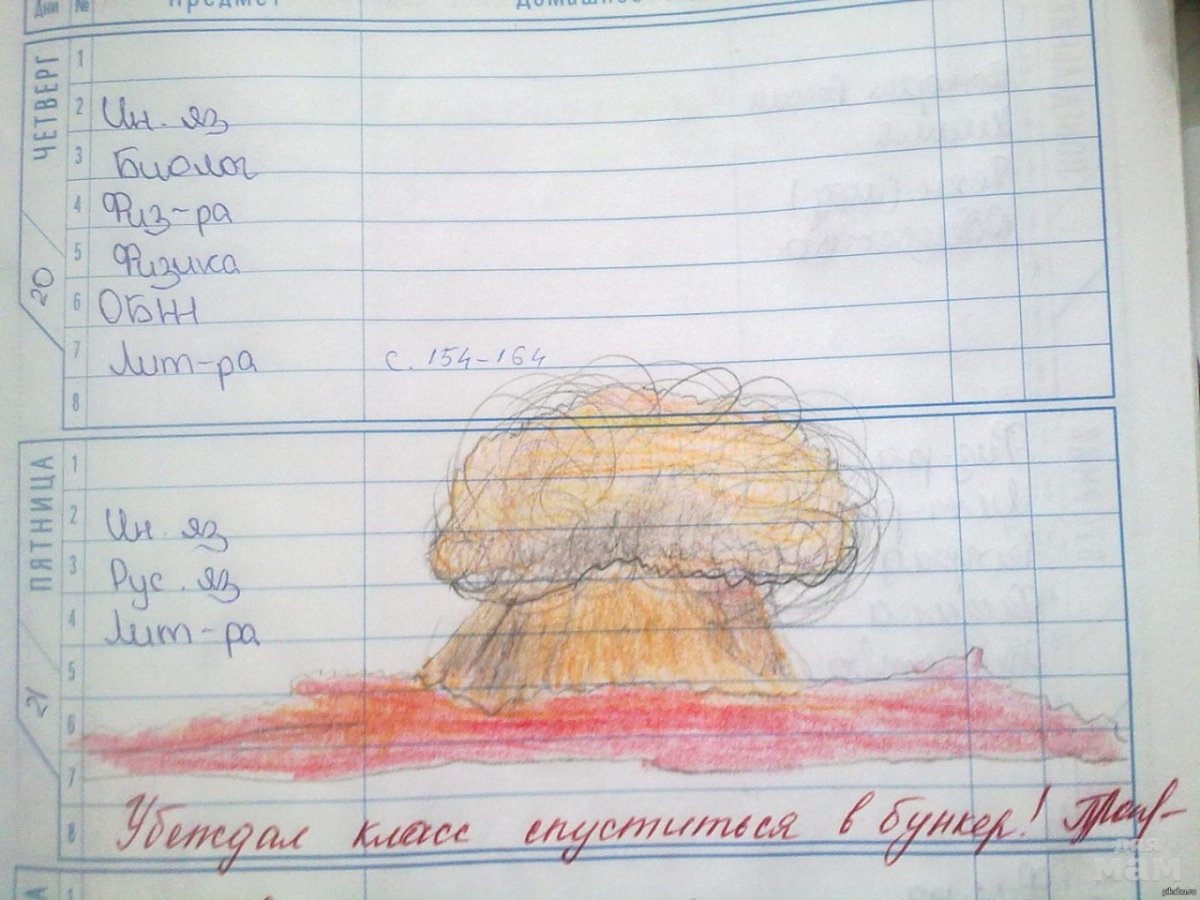 Дни № предмет домашнее
ЧЕТВЕРГ
20
1
2 Ин. яз
3 Биолог
4 Физ-ра
5 Физика
6 ОБЖ
7 Лит-ра с. 154-164
8
ПЯТНИЦА
21
1
2 Ин. яз
3 Рус. яз
4 Лит-ра
5
6
7
8 Убеждал класс спуститься в бункер!
1
для мам
pikabu.ru